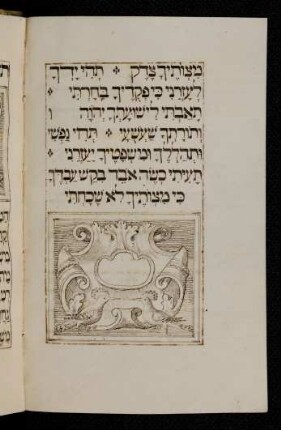 מִצְוֹתֶיךָ צֶּדֶק ✦ תְּהִי יָדְךָ
לְעָזְרֵנִי כִּי פִקֻּדֶיךָ בָחָרְתִּי ✦
תָּאַבְתִּי לִישׁוּעָתְךָ יְהוָה ו
וְתוֹרָתְךָ שַׁעֲשֻׁעָי ✦ תְּחִי נַפְשִׁי
וּתְהַלְלֶךָּ וּמִשְׁפָּטֶיךָ יַעְזְרֻנִי ✦
תָּעִיתִי כְּשֶׂה אֹבֵד בַּקֵּשׁ עַבְדֶּךָ
כִּי מִצְוֹתֶיךָ לֹא שָׁכָחְתִּי